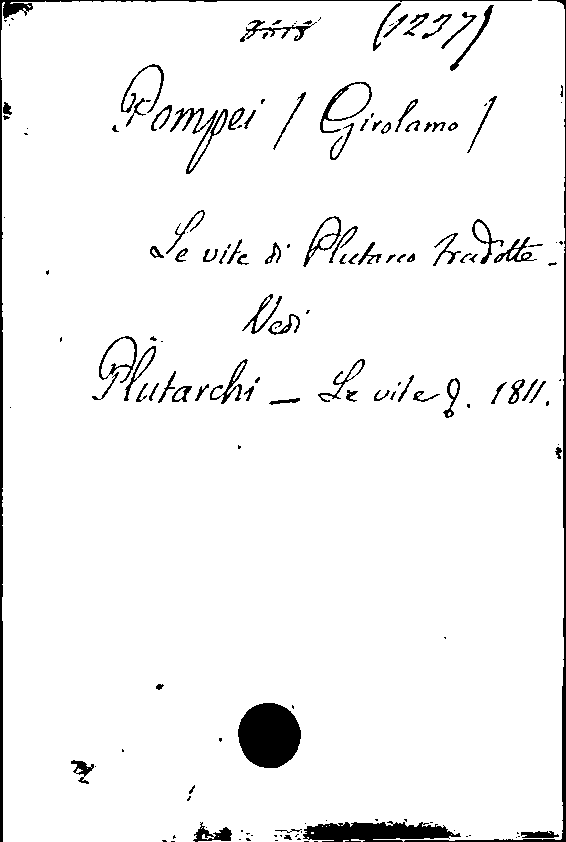 (1237)
Pompei / Girolamo /
Le vite di Plutarco tradotte -
Vedi
Plutarchi — Le vite &. 1811.